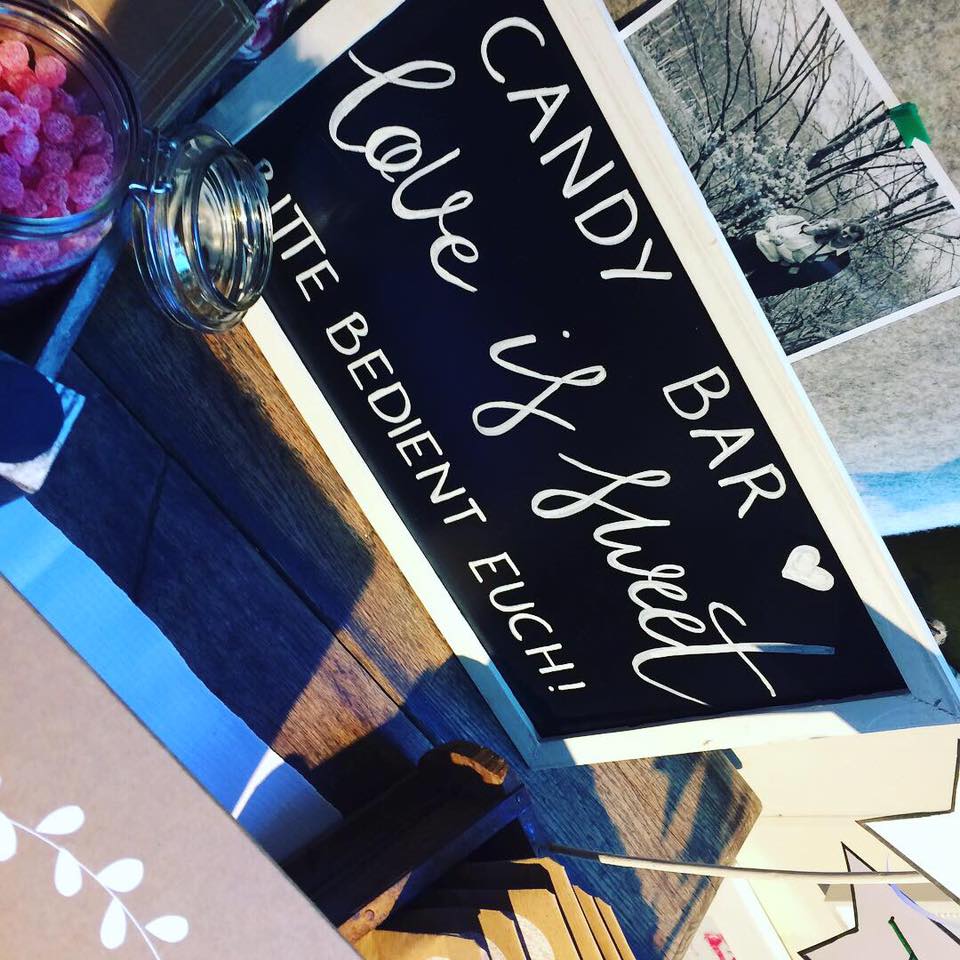 CANDY BAR
love is sweet
BITTE BEDIENT EUCH!